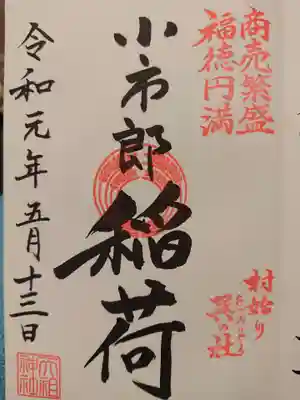 商売繁盛
福徳円満
村始り
巽の社
小市郎稲荷
令和元年五月十三日